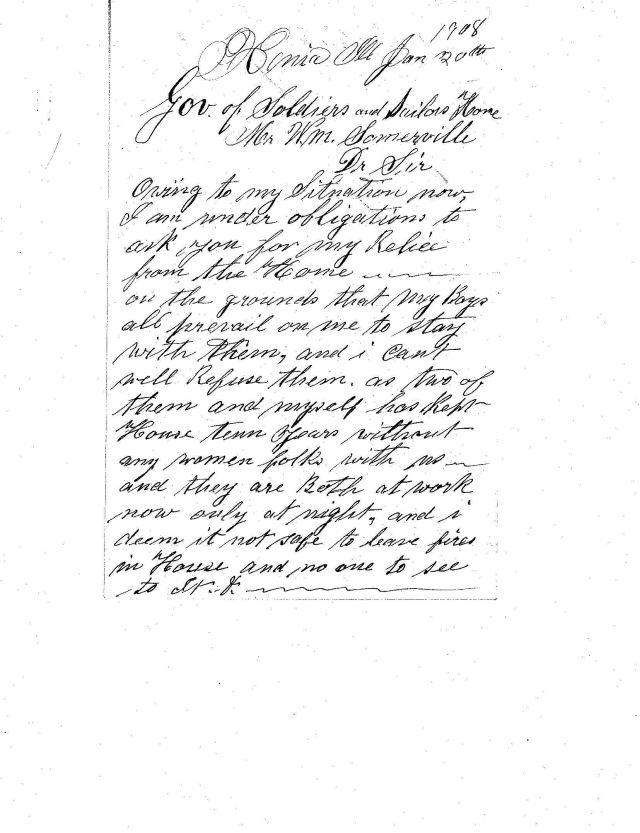 1908
Xenia Ill Jan 20th
Gov. of Soldiers and Sailors Home
Mr Wm. Somerville
Dr Sir
Owing to my Situation now,
I am under obligations to
ask you for my Relice
from the Home
on the grounds that my Boys
all prevail on me to stay
with them, and i Can't
well Refuse them. as two of
them and myself has Kept
House tenn Years without
any women folks with us
and they are Both at work
now only at night, and i
deem it not safe to leave fires
in House and no one to see
to It. &